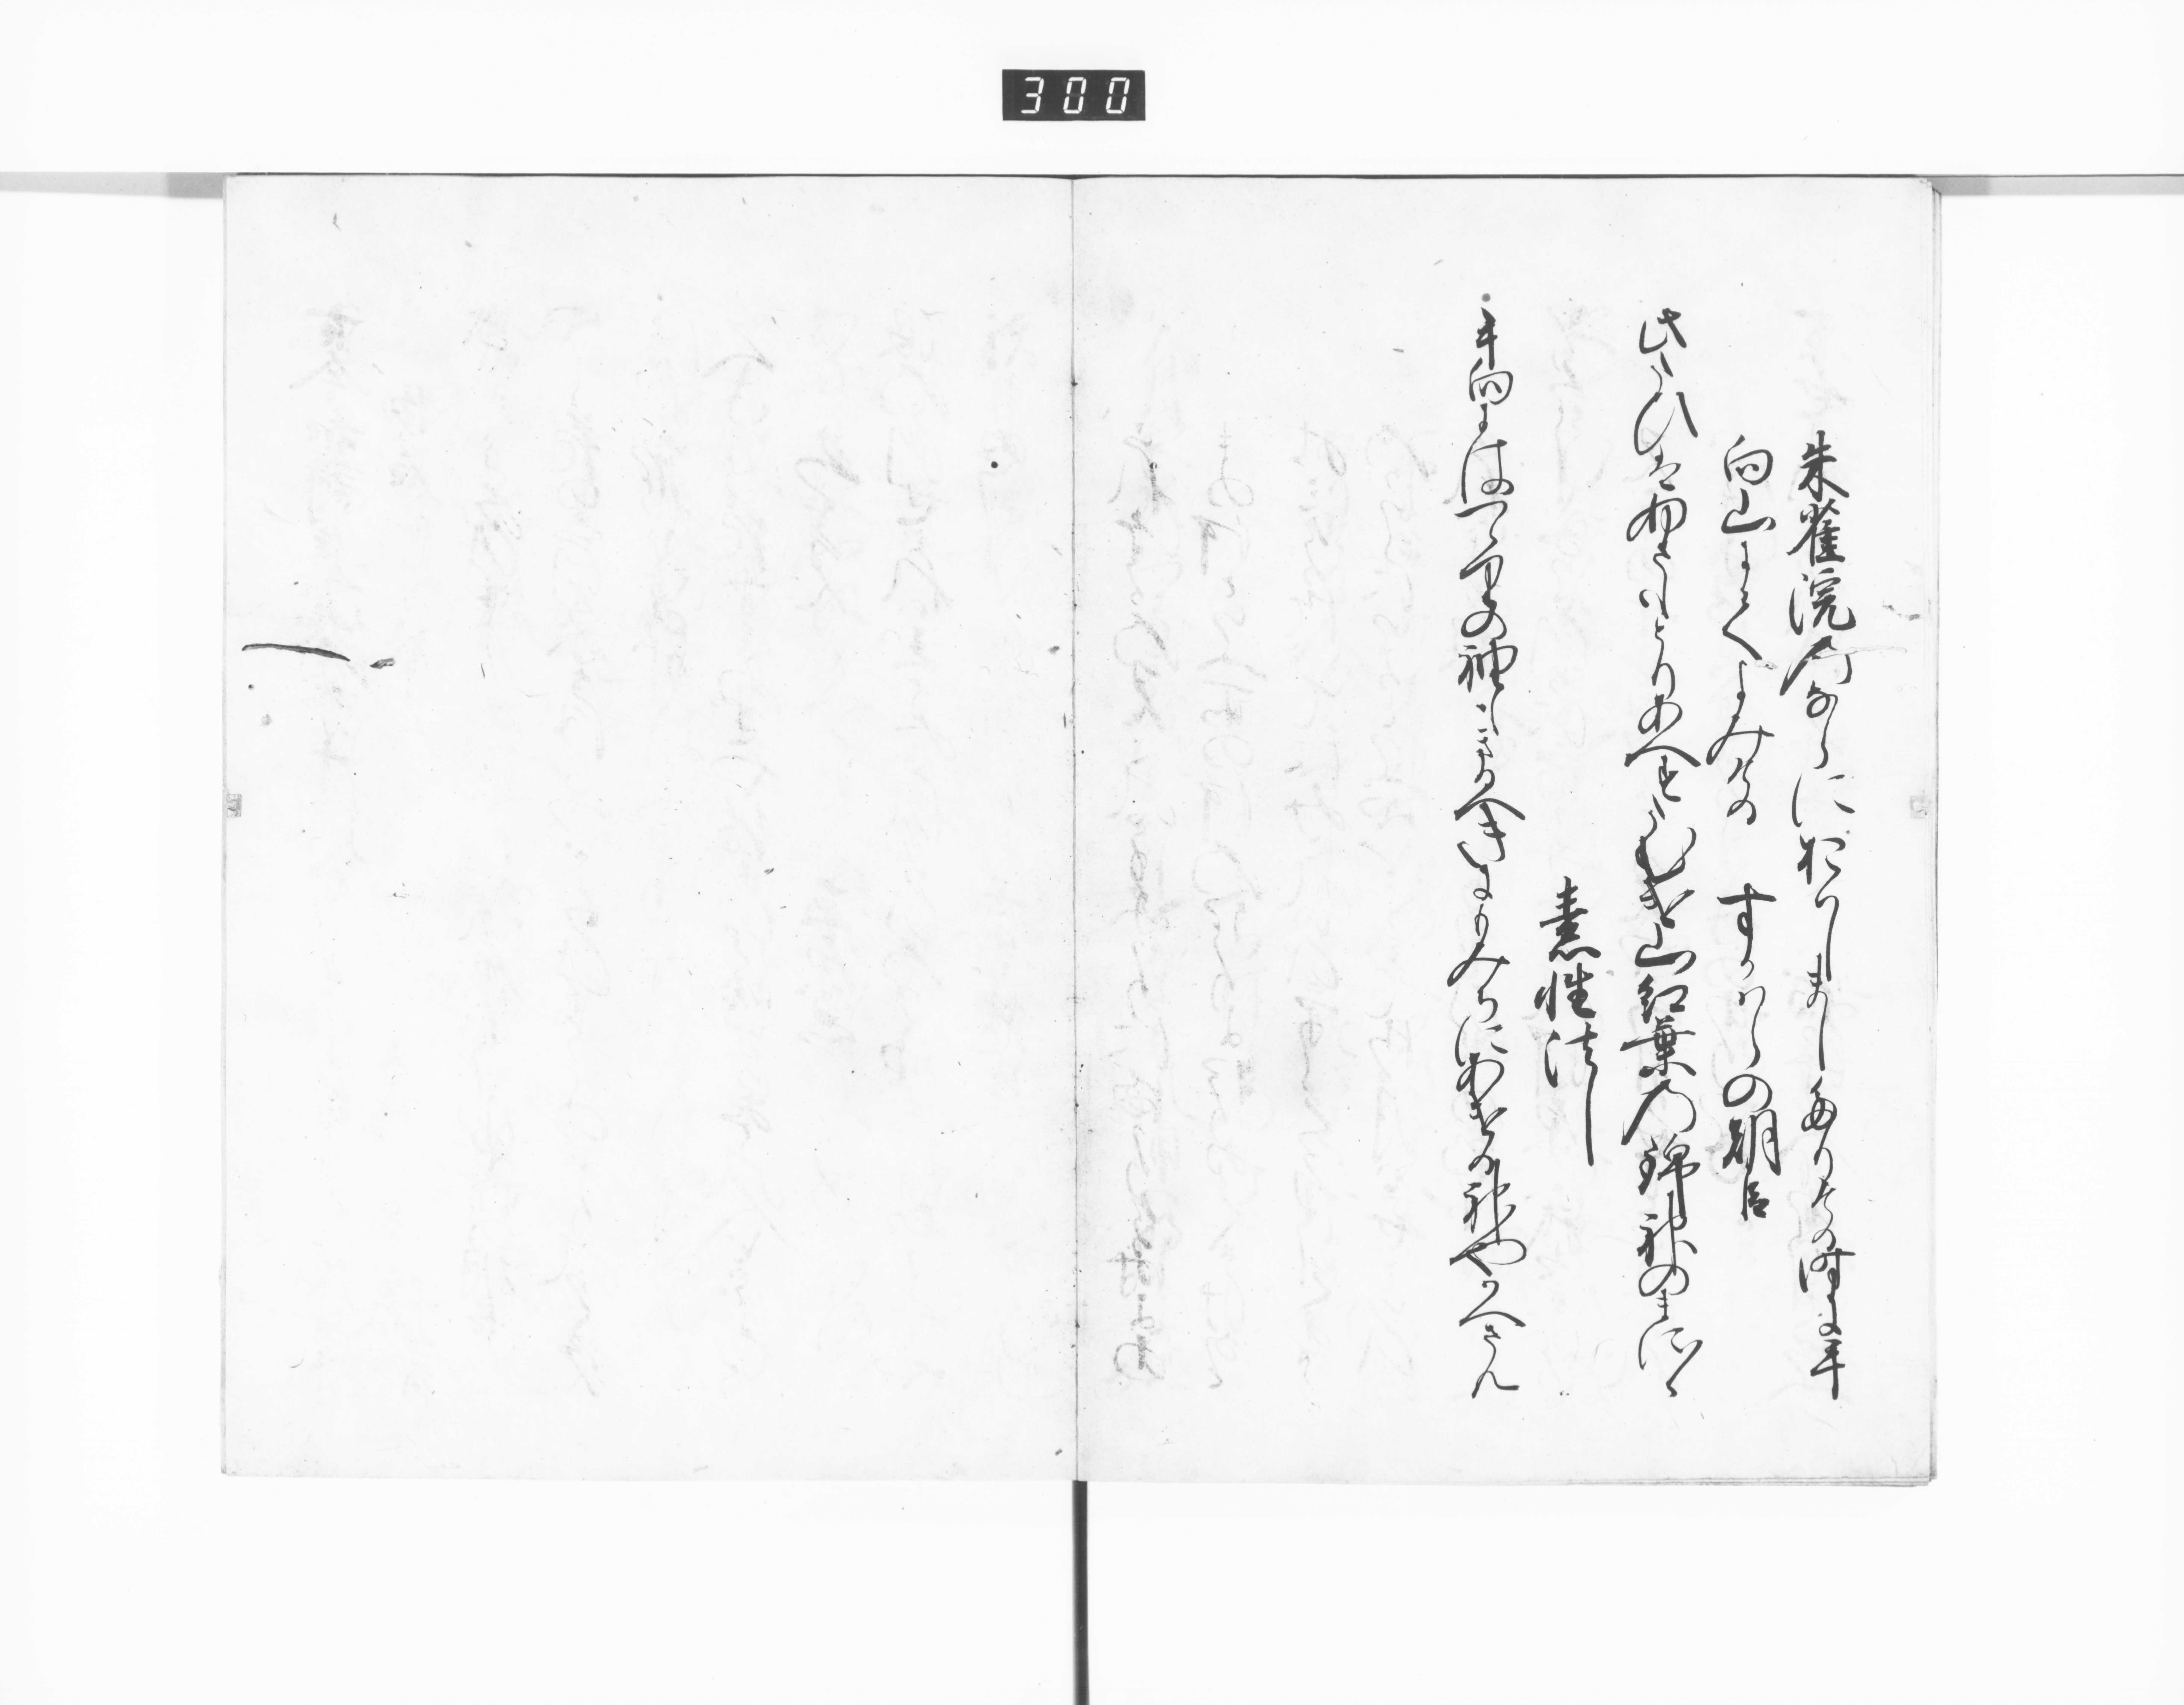 300
朱雀院のならにおはしましたりける時に手
向山にてよみける　すかはらの朝臣
此たひはぬさもとりあへすたむけ山紅葉の錦神のまに〱
素性法し
手向にはつゝりの袖もきるへきにもみちにあける神やかへさん